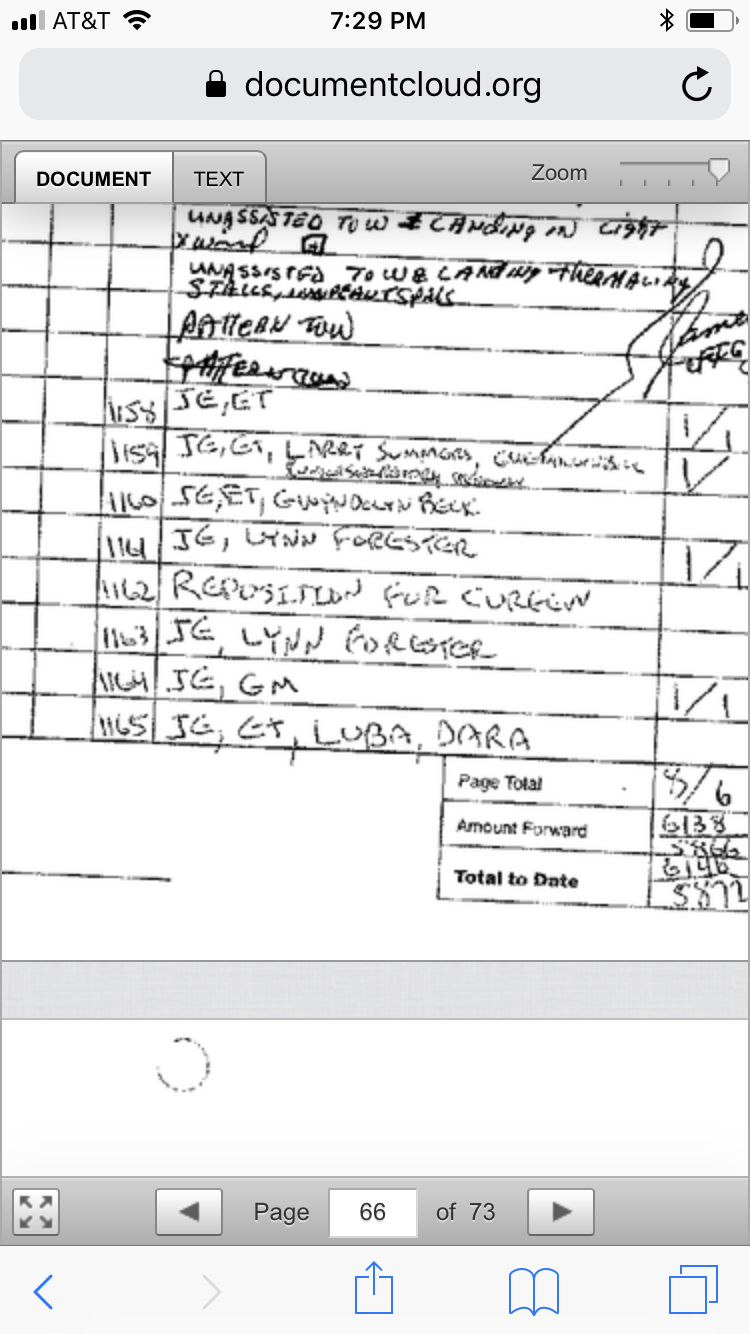 AT&T 7:29 PM
documentcloud.org
DOCUMENT TEXT Zoom
UNASSISTED TOW & LANDING IN LIGHT
Xwind
UNASSISTED TOW & LANDING THERMALING
STALLS,
PATTERN TOW
1158 JE, ET 1/1
1159 JE, ET, LARRY SUMMERS, 1/
1160 JE, ET, GWYNDOLYN BECK
1161 JE, LYNN FORESTER 1/1
1162 REPOSITION FOR CURFEW
1163 JE, LYNN FORESTER
1164 JE, GM 1/1
1165 JE, ET, LUBA, DARA
Page Total 8/6
Amount Forward 6138
5866
Total to Date 6146
5872
Page 66 of 73